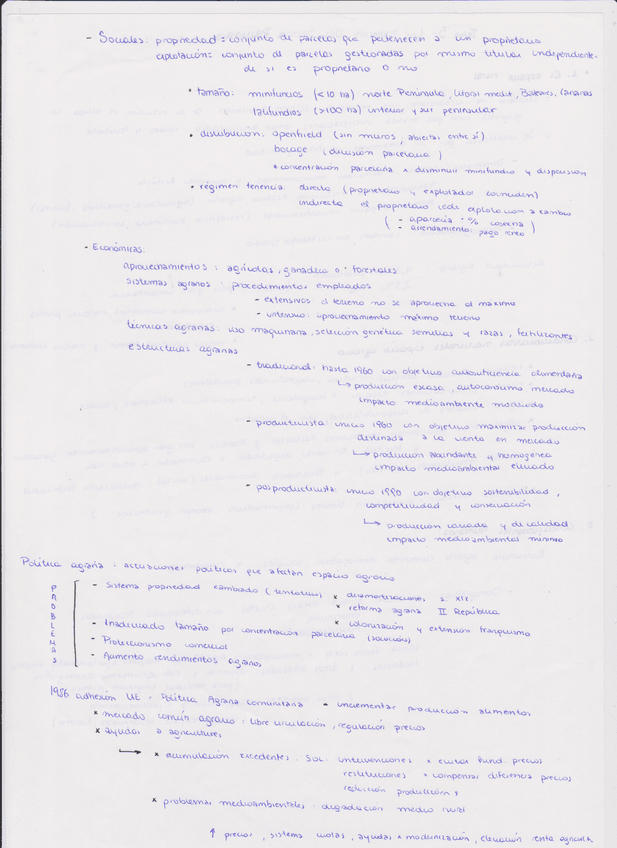 - Sociales: propiedad = conjunto de parcelas que pertenecen a un propietario
explotación = conjunto de parcelas gestionadas por mismo titular independiente-
de si es propietario o no
* tamaño: minifundios (<10 ha) norte Península, litoral medit, Baleares, Canarias
latifundios (>100 ha) interior y sur peninsular
* distribución: openfield (sin muros, abiertas entre sí)
bocage (división parcelaria)
* concentración parcelaria x disminuir minifundio y dispersión
* régimen tenencia: directa (propietario y explotador coinciden)
indirecta el propietario cede explotación a cambio
( - aparcería: % cosecha
- arrendamiento: pago
- Económicas:
aprovechamientos: agrícolas, ganadero o forestales
sistemas agrarios: procedimientos empleados
- extensivos el terreno no se aprovecha al máximo
- intensivo: aprovechamiento máximo terreno
técnicas agrarias: uso maquinaria, selección genética semillas y razas, fertilizantes
estructuras agrarias
- tradicional: hasta 1960 con objetivo autosuficiencia alimentaria
↳ producción escasa, autoconsumo mercado
impacto medioambiente moderado
- productivista: inicio 1960 con objetivo maximizar producción
destinada a la venta en mercado
↳ producción abundante y homogénea
impacto medioambiental elevado
- posproductivista: inicio 1990 con objetivo sostenibilidad,
competitividad y conservación
↳ producción variada y de calidad
impacto medioambiental mínimo
Política agraria: actuaciones políticas que afectan espacio agrario
PROBLEMAS
- Sistema propiedad cambiado (tentativas) x desamortizaciones s. XIX
x reforma agraria II República
x colonización y extensión franquismo
- Inadecuado tamaño por concentración parcelaria (solución)
- Proteccionismo comercial
- Aumento rendimientos agrarios
1986 adhesión UE - Política Agraria Comunitaria - incrementar producción alimentos
x mercado común agrario: libre circulación, regulación precios
x ayudas a agricultores
→ x acumulación excedentes. Sol: intervenciones x evitar precios
restituciones x compensar diferencia precios
reducción producción
x problemas medioambientales: degradación medio rural
↑ precios, sistema cuotas, ayudas x modernización, elevación renta agrícola